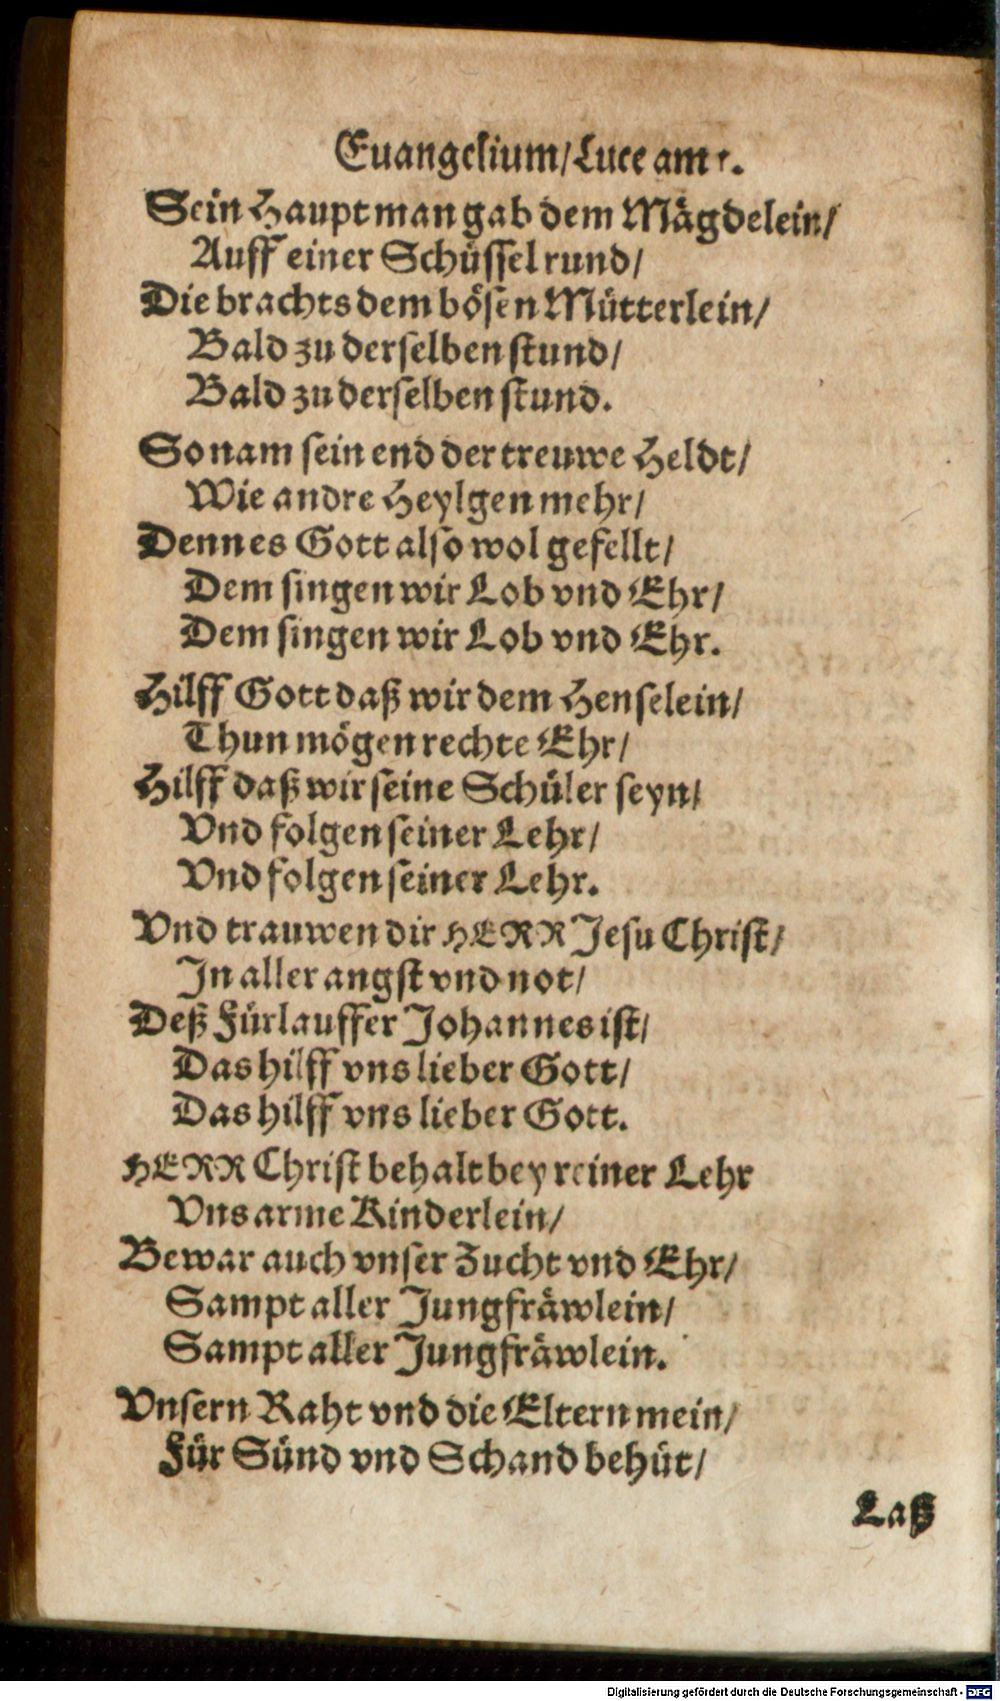 Euangelium/ Luce am 1.
Sein Hauptman gab dem Mägdelein/
Auff einer Schüssel rund/
Die brachts dem bösen Mütterlein/
Bald zu derselben stund/
Bald zu derselben stund.
So nam sein end der treuwe Heldt/
Wie andre Heylgen mehr/
Denn es Gott also wol gefellt/
Dem singen wir Lob vnd Ehr/
Dem singen wir Lob vnd Ehr.
Hilff Gott daß wir dem Henselein/
Thun mögen rechte Ehr/
Hilff daß wir seine Schüler seyn/
Vnd folgen seiner Lehr/
Vnd folgen seiner Lehr.
Vnd trauwen dir HERR Jesu Christ/
In aller angst vnd not/
Deß Fürlauffer Johannes ist/
Das hilff vns lieber Gott/
Das hilff vns lieber Gott.
HERR Christ behalt bey reiner Lehr
Vns arme Kinderlein/
Bewar auch vnser Zucht vnd Ehr/
Sampt aller Jungfräwlein/
Sampt aller Jungfräwlein.
Vnsern Raht vnd die Eltern mein/
Für Sünd vnd Schand behüt/
Laß
Digitalisierung gefördert durch die Deutsche Forschungsgemeinschaft - DFG